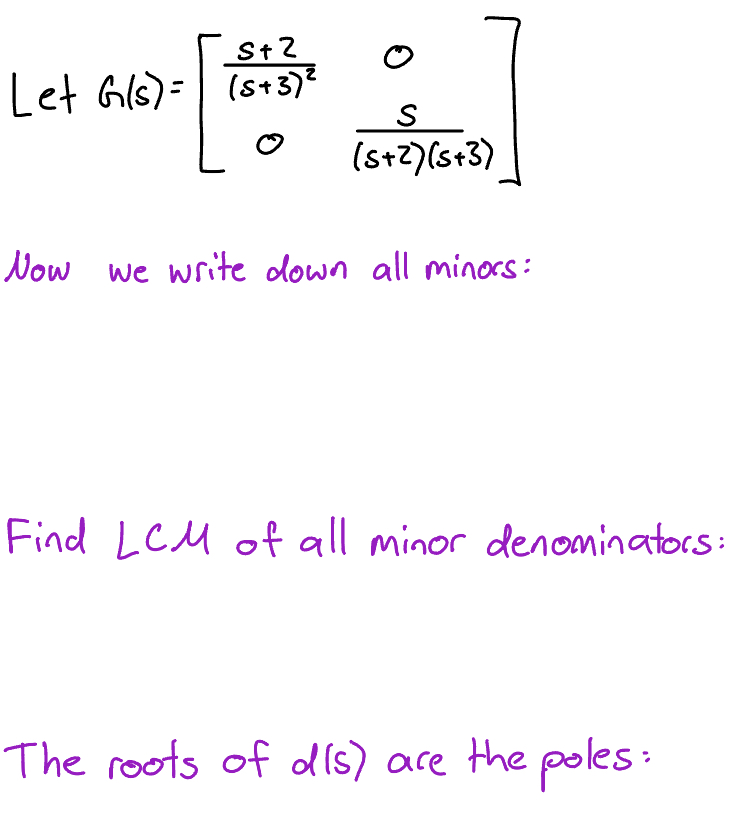 Let G(s) = [ s+2/(s+3)² 0
0 s/(s+2)(s+3) ]
Now we write down all minors:
Find LCM of all minor denominators:
The roots of d(s) are the poles: